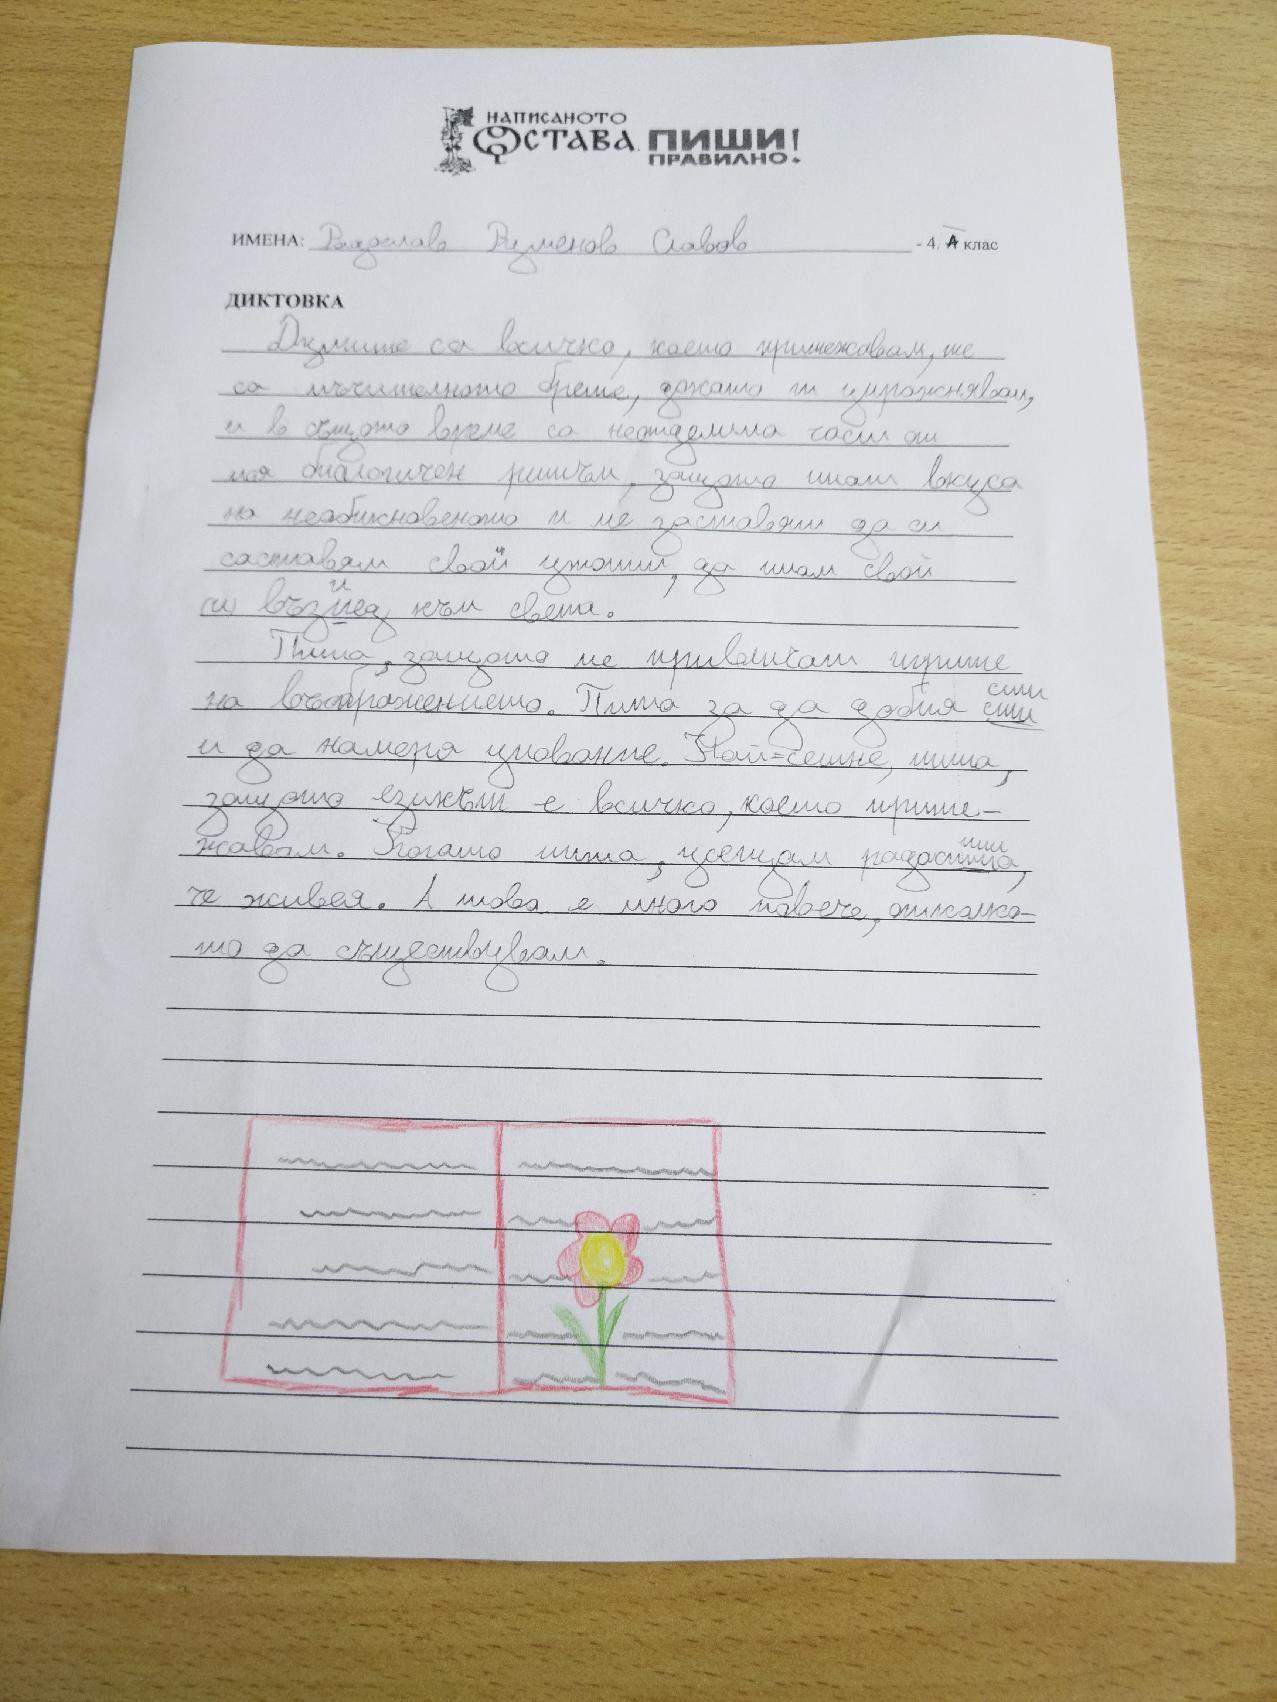 НАПИСАНОТО
ОСТАВА. ПИШИ
ПРАВИЛНО!
ИМЕНА: Радослав Руменов Славов - 4. А клас
ДИКТОВКА
Думите са всичко, което притежавам, те
са мъчителното бреме, докато ги упражнявам,
и в същото време са неотделима част от
моя биологичен ритъм, защото имат вкуса
на необикновеното и ме заставят да си
съставям свой утопии, да имам свой
си възглед към света.
Пиша, защото ме привличат игрите
на въображението. Пиша за да добия сили
и да намеря упование. Най-сетне, пиша,
защото езикът е всичко, което прите-
жавам. Когато пиша, усещам радостта,
че живея. А това е много повече, отколко-
то да съществувам.